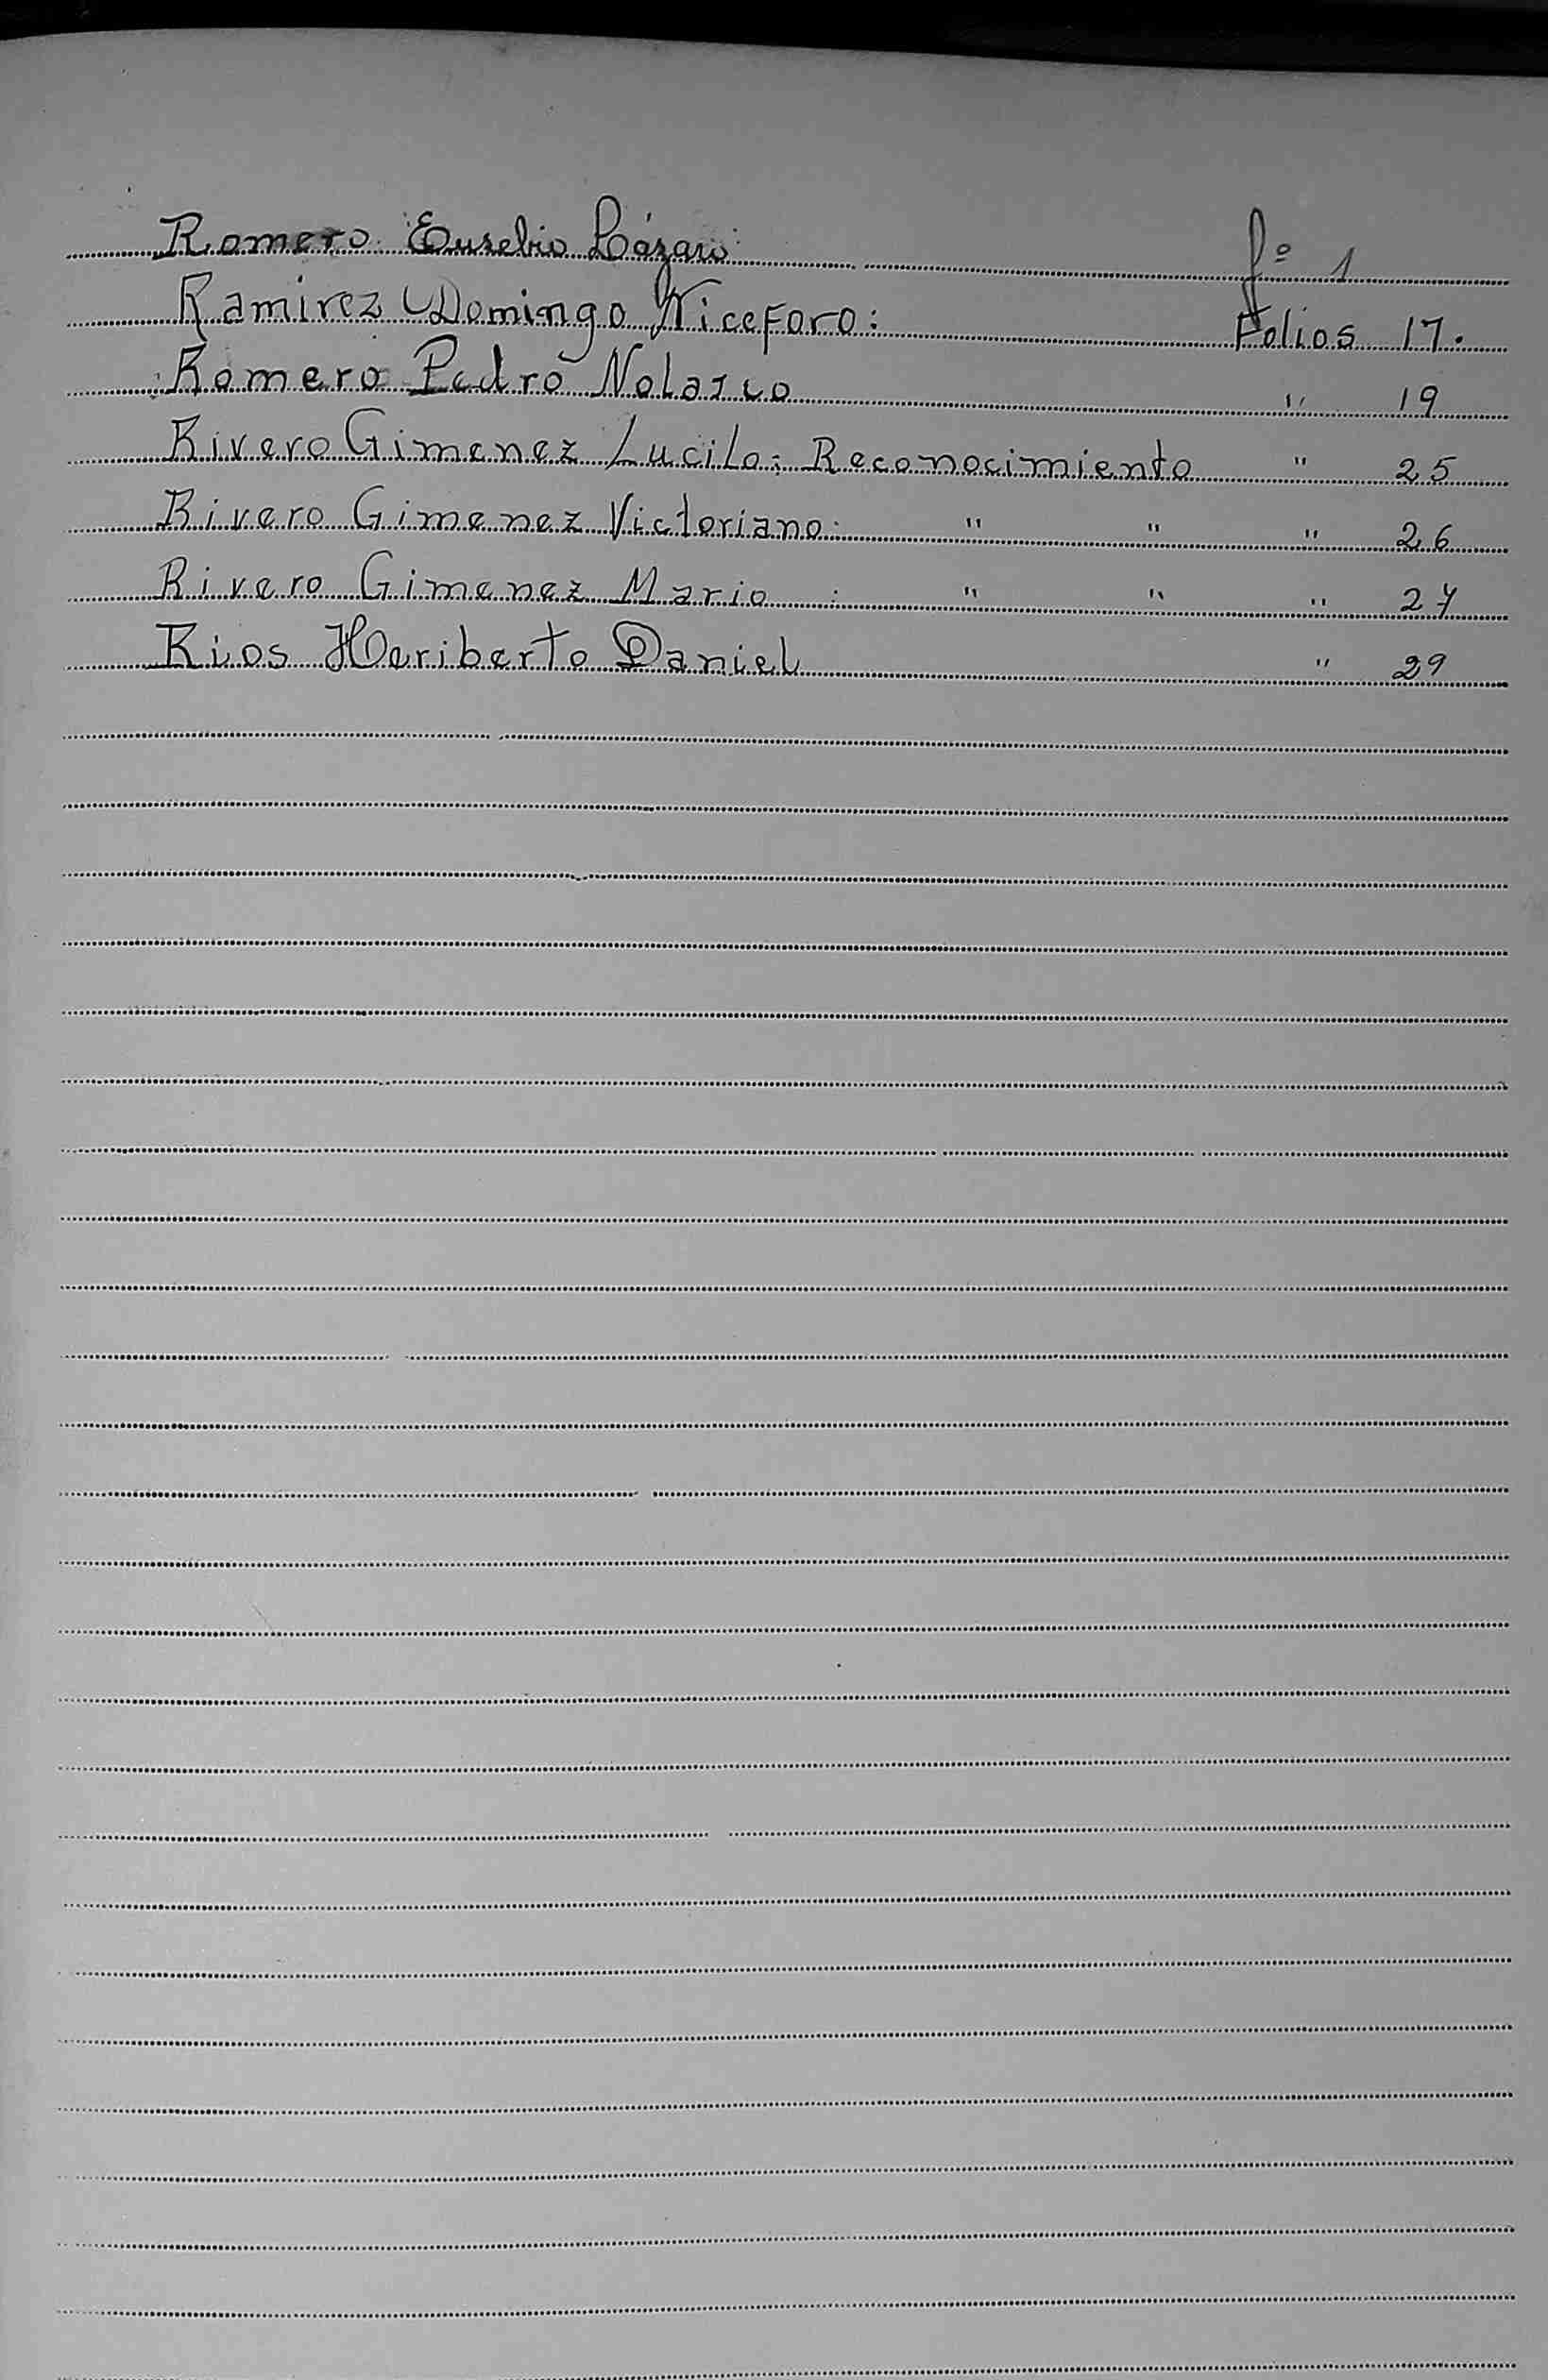 Romero Eusebio Lázaro fº 1
Ramirez Domingo Niceforo: Folios 17.
Romero Pedro Nolasco " 19
Rivero Gimenez Lucilo: Reconocimiento " 25
Rivero Gimenez Victoriano: " " " 26
Rivero Gimenez Mario : " " " 27
Rios Heriberto Daniel " 29